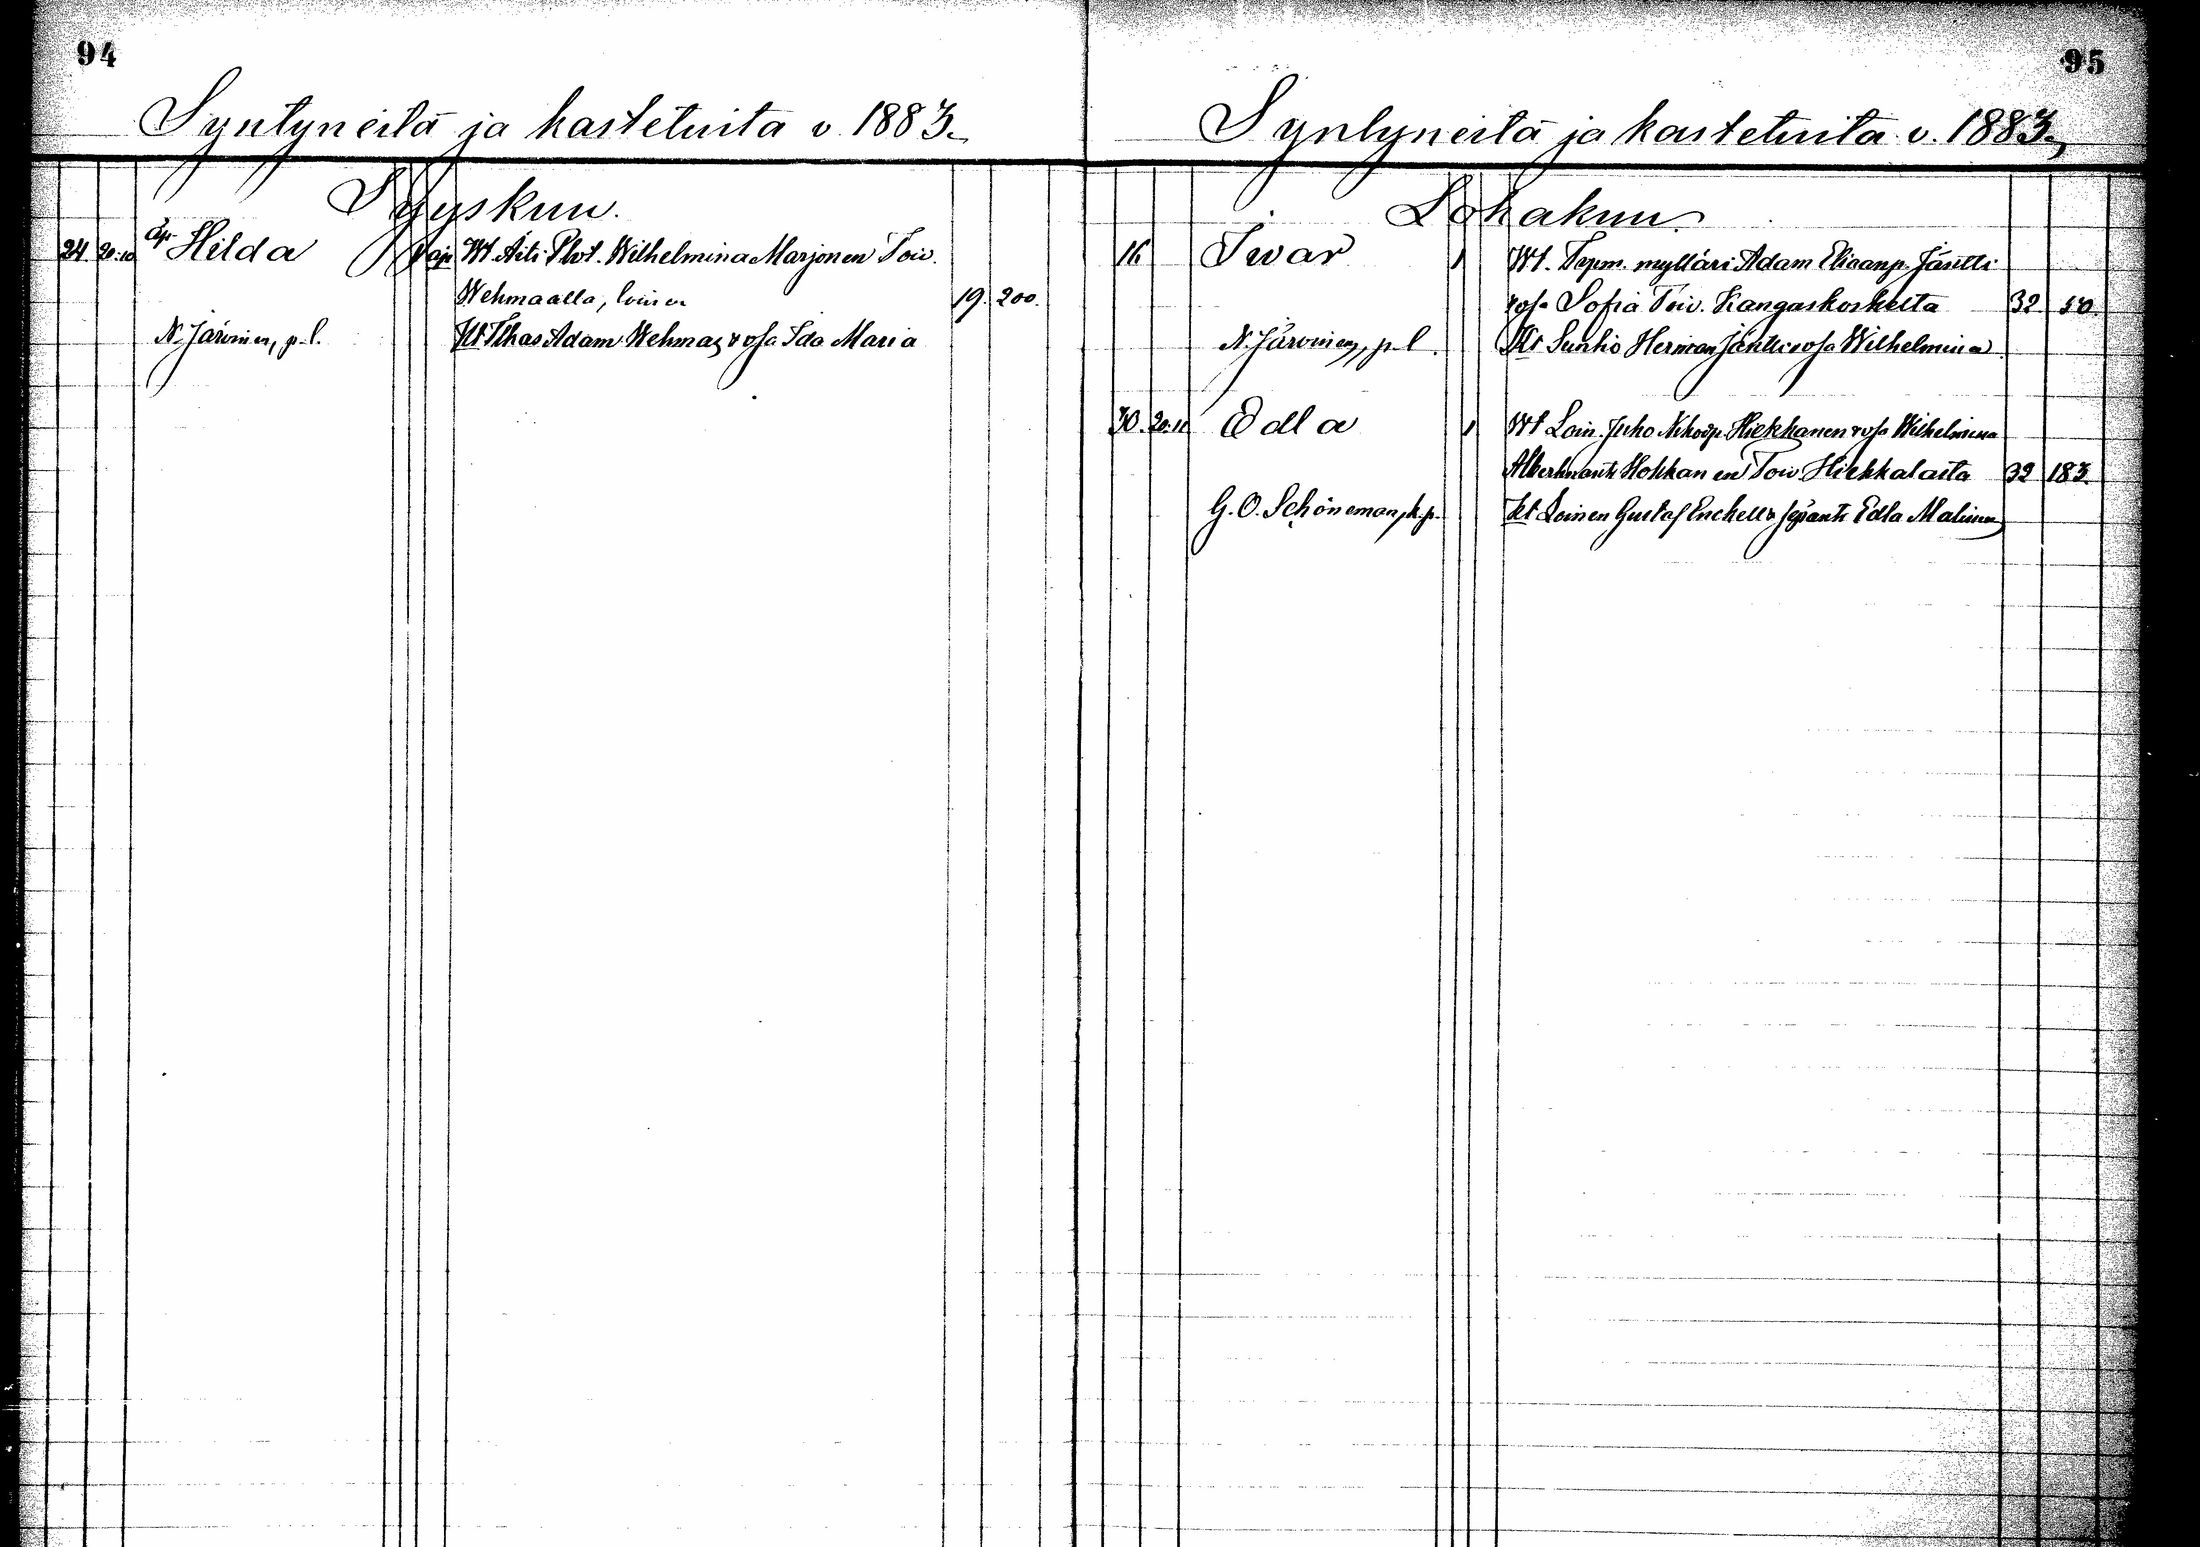 94
Syntyneitä ja kastetuita v. 1883.
Syyskuu.
24. 20.10 Äp. Hilda 1 äp. Wt. Äiti Plvt. Wilhelmina Marjonen Toiv.
Wehmaalla, loinen 19. 200.
N. Järvinen, p. l. Kt Tlhas Adam Wehmas, r vsa Ida Maria
95
Syntyneitä ja kastetuita v. 1883.
Lokakuu.
16 Iwar 1 Wt. Tepm. mylläri Adam Eliaanp. Jäntti
vsa Sofia Toiv. Kangaskoskelta 32. 50.
N. Järvinen, p. l. Kt Herman Jäntti vsa Wilhelmina
30. 20.11 Edla 1 Wt Loin. Juho Hiekkanen vsa Wilhelmina
Hokkanen Toiv Hiekkalasta 32 183.
G. O. Schöneman, k. p. Kt Loinen Gustaf Enckell Edla Malinen